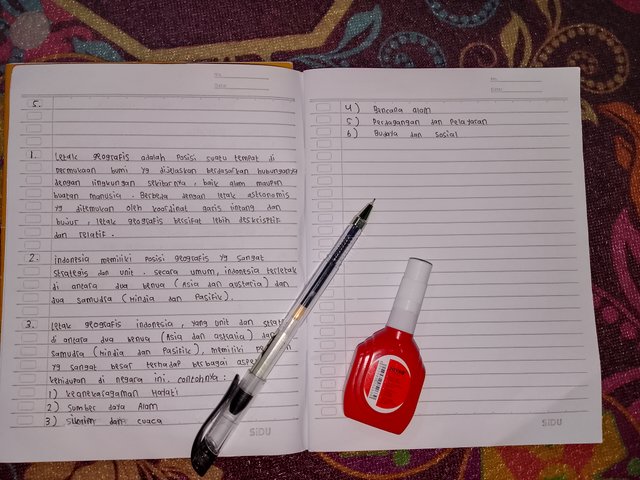 No.
Date:
5.
1. Letak geografis adalah posisi suatu tempat di
permukaan bumi yg dijelaskan berdasarkan hubungannya
dengan lingkungan sekitarnya, baik alam maupun
buatan manusia. Berbeda dengan letak astronomis
yg ditemukan oleh koordinat garis lintang dan
bujur, letak geografis bersifat lebih deskriptif
dan relatif.
2. Indonesia memiliki posisi geografis yg sangat
strategis dan unit. secara umum, indonesia terletak
di antara dua benua (Asia dan austaria) dan
dua samudra (Hindia dan Pasifik).
3. Letak geografis indonesia, yang unit dan
di antara dua benua (Asia dan astraria)
samudra (Hindia dan Pasifik), memiliki
yg sangat besar terhadap berbagai
kehidupan di negara ini. contohnya.
1) keanekaragaman Hayati
2) Sumber daya Alam
3) dan cuaca
SiDU
No.
Date:
4) Bencana alam
5) Perdagangan dan Pelayaran
6) Budaya dan Sosial
SiDU